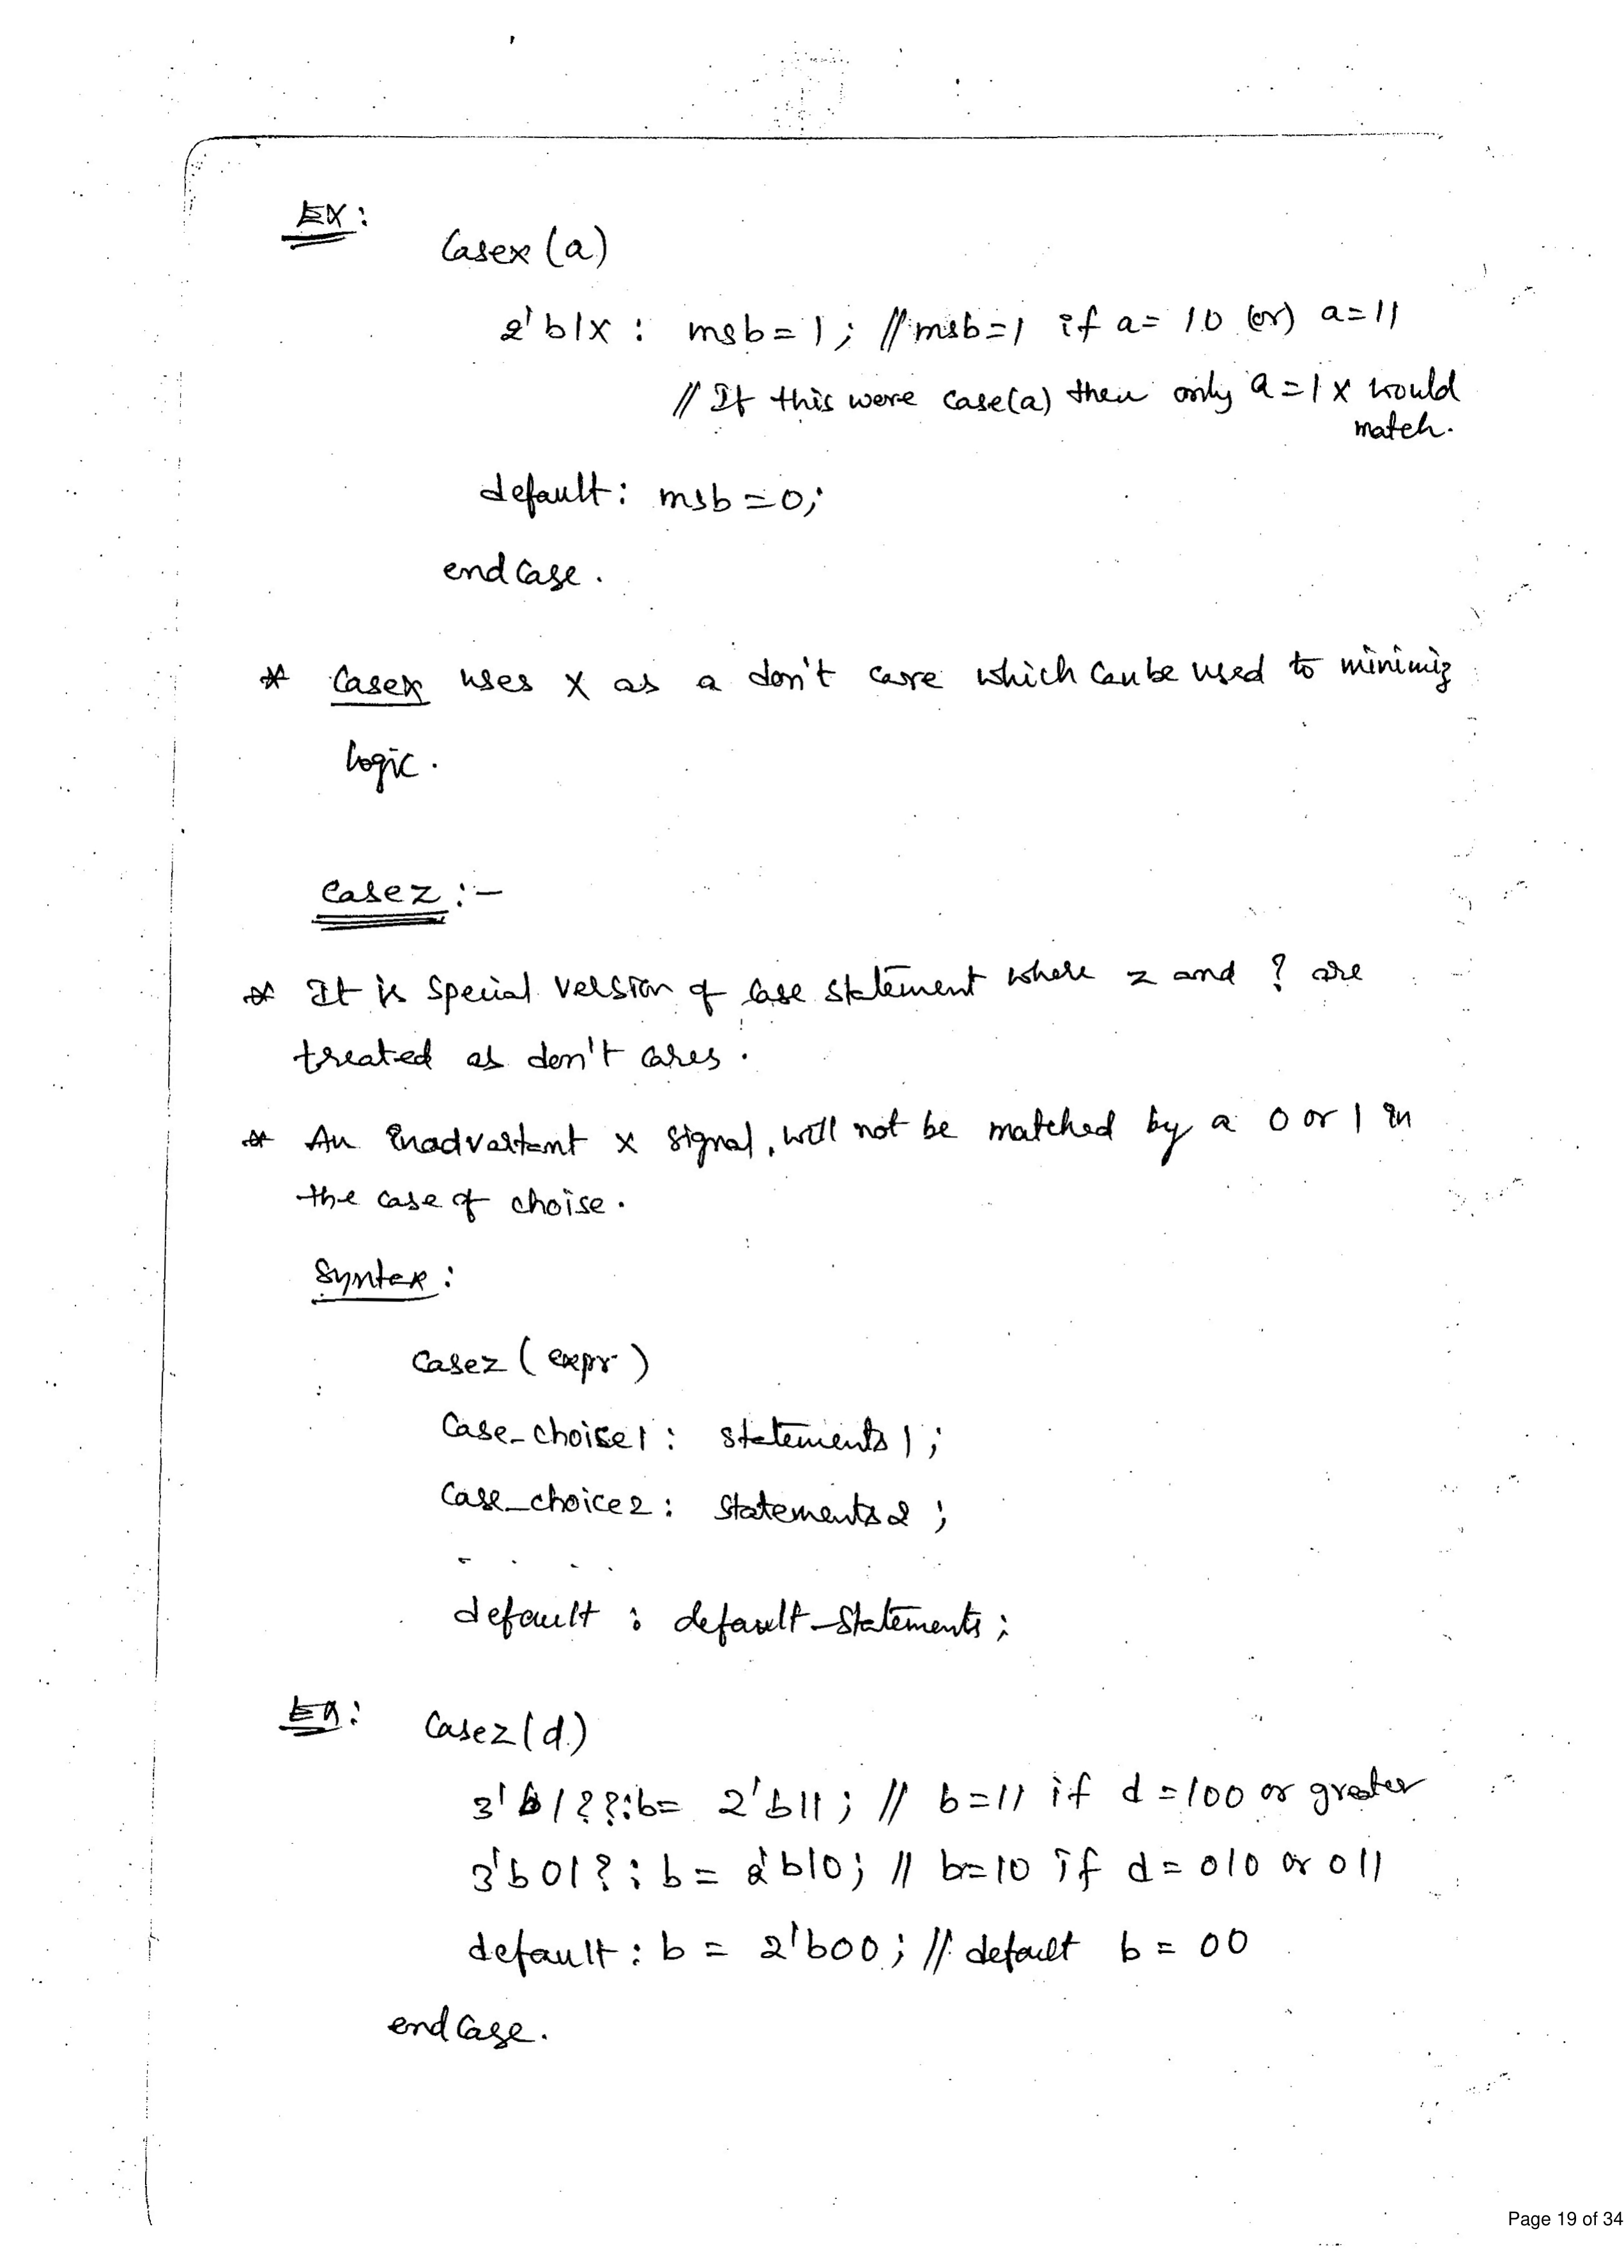 EX:
Casex (a)
2'b1x : msb = 1; // msb=1 if a= 10 (or) a=11
// If this were case(a) then only a=1x would
match.
default: msb =0;
endcase.
* Casex uses x as a don't care which can be used to minimiz
logic.
Casez :-
* It is special version of case statement where z and ? are
treated as don't cares.
* An inadvartant x signal, will not be matched by a 0 or 1 in
the case of choise.
Syntex:
Casez (expr)
Case_choise1: statements1;
Case_choice2: statements2;
- . - .
default : default_statements;
EX: Casez(d)
3'b1??:b= 2'b11; // b=11 if d=100 or greater
3'b01?: b= 2'b10; // b=10 if d=010 or 011
default: b = 2'b00; // default b = 00
endcase.
Page 19 of 34